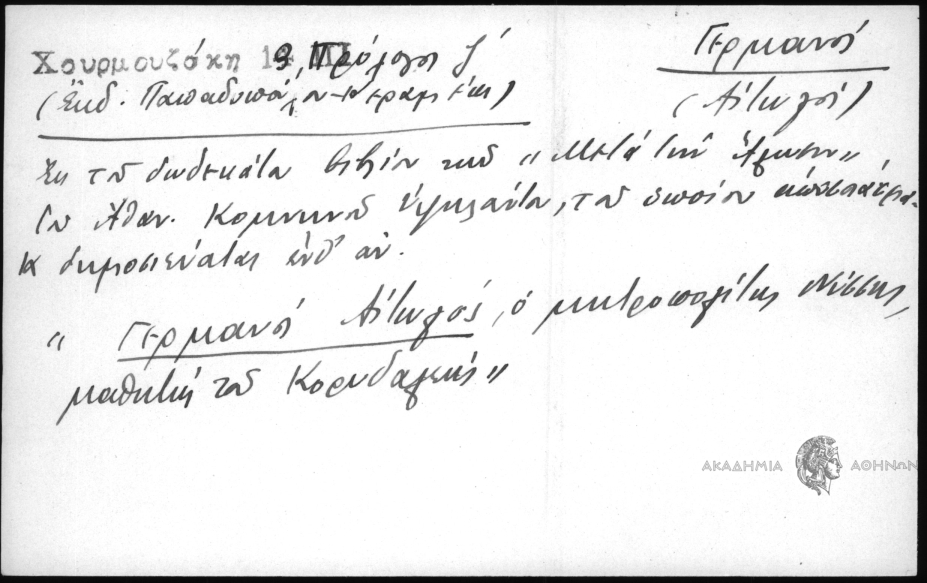 Χουρμουζάκη 13, Πρόλογος ζ΄
(Ἐκδ. Παπαδοπούλου-Κεραμέως)
Γερμανός
(Αἰτωλός)
Ἐκ τοῦ δωδεκάτου βιβλίου τῶν "Μετὰ τὴν Ἅλωσιν"
τοῦ Ἀθαν. Κομνηνοῦ Ὑψηλάντου, τοῦ ὁποίου ἀποσπάσμα-
τα δημοσιεύεται ἐνθ' ἀν.
" Γερμανός Αἰτωλός, ὁ μητροπολίτης Νύσσης,
μαθητής τοῦ Κορυδαλέως"
ΑΚΑΔΗΜΙΑ ΑΘΗΝΩΝ